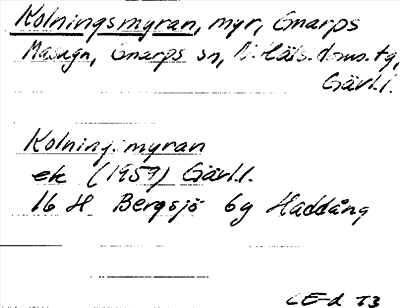 Kolningsmyran, myr, Gnarps
Masugn, Gnarps sn, N. Häls. doms. tg,
Gävl.l.
Kolning.myran
ek (1959) Gävl.l.
16 H Bergsjö 6g Haddång
CE-d 73